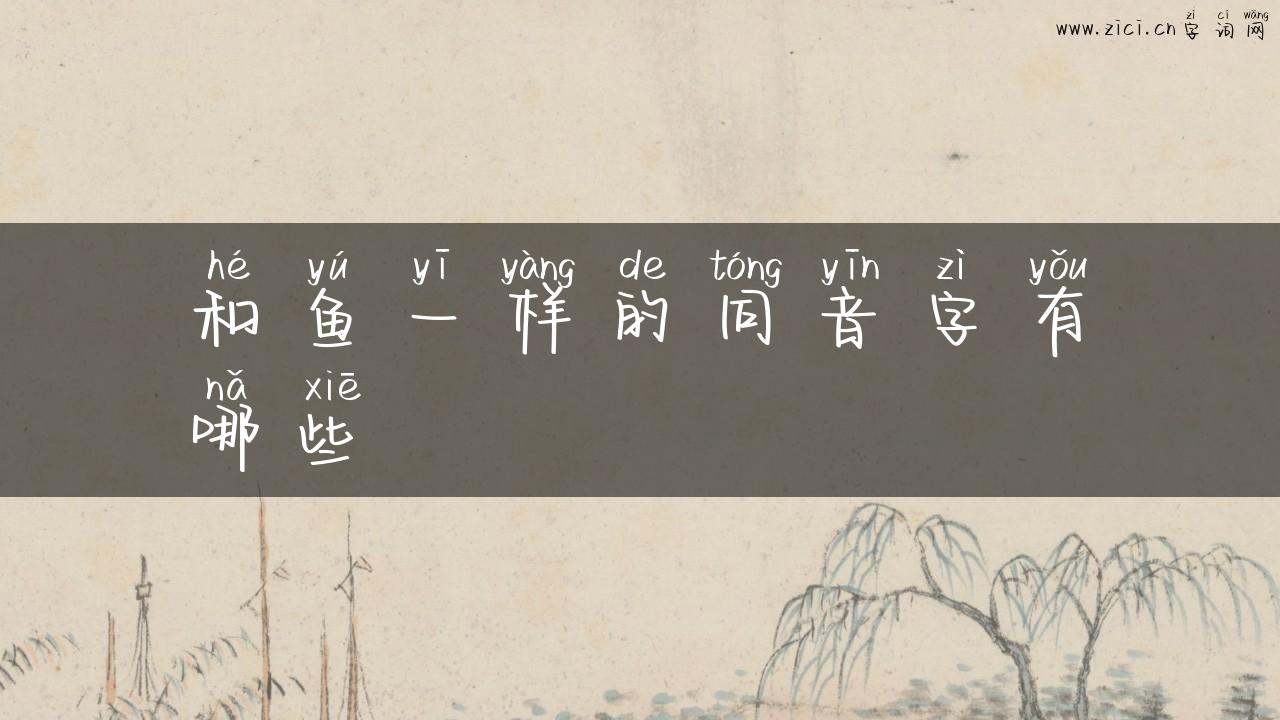 zì cí wǎng
www.zici.cn 字词网
hé yú yī yàng de tóng yīn zì yǒu
和鱼一样的同音字有
nǎ xiē
哪些